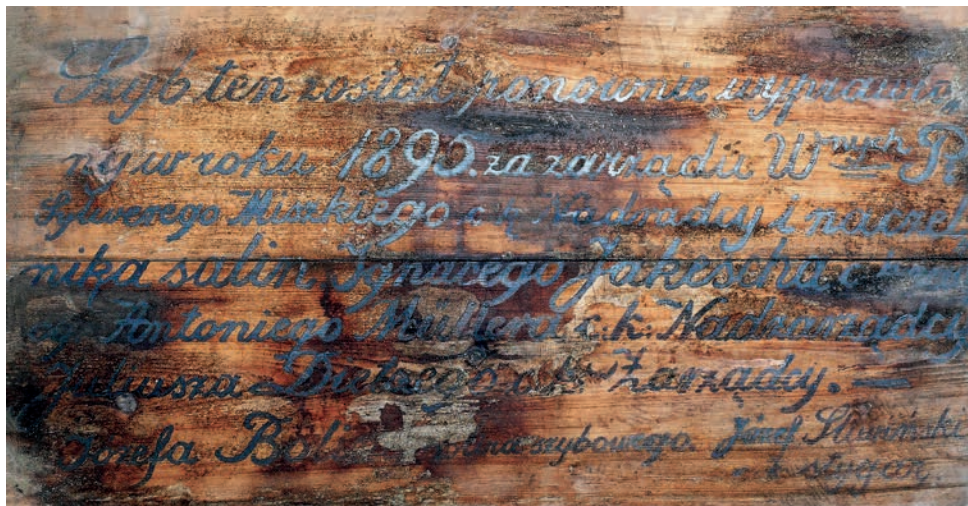 Szyb ten został ponownie wyprawio
ny w roku 1895. za zarządu Wnych P.
Sylwerego Miszkiego c.k. Nadradcy i naczel
nika salin, Ignacego Jakescha c.k.
Antoniego Müllera c.k. Nadzarządcy
Juliusza Dietzego c.k. Zarządcy. —
Józefa szybowego. Józef Śliwiński
c.k. sztygar